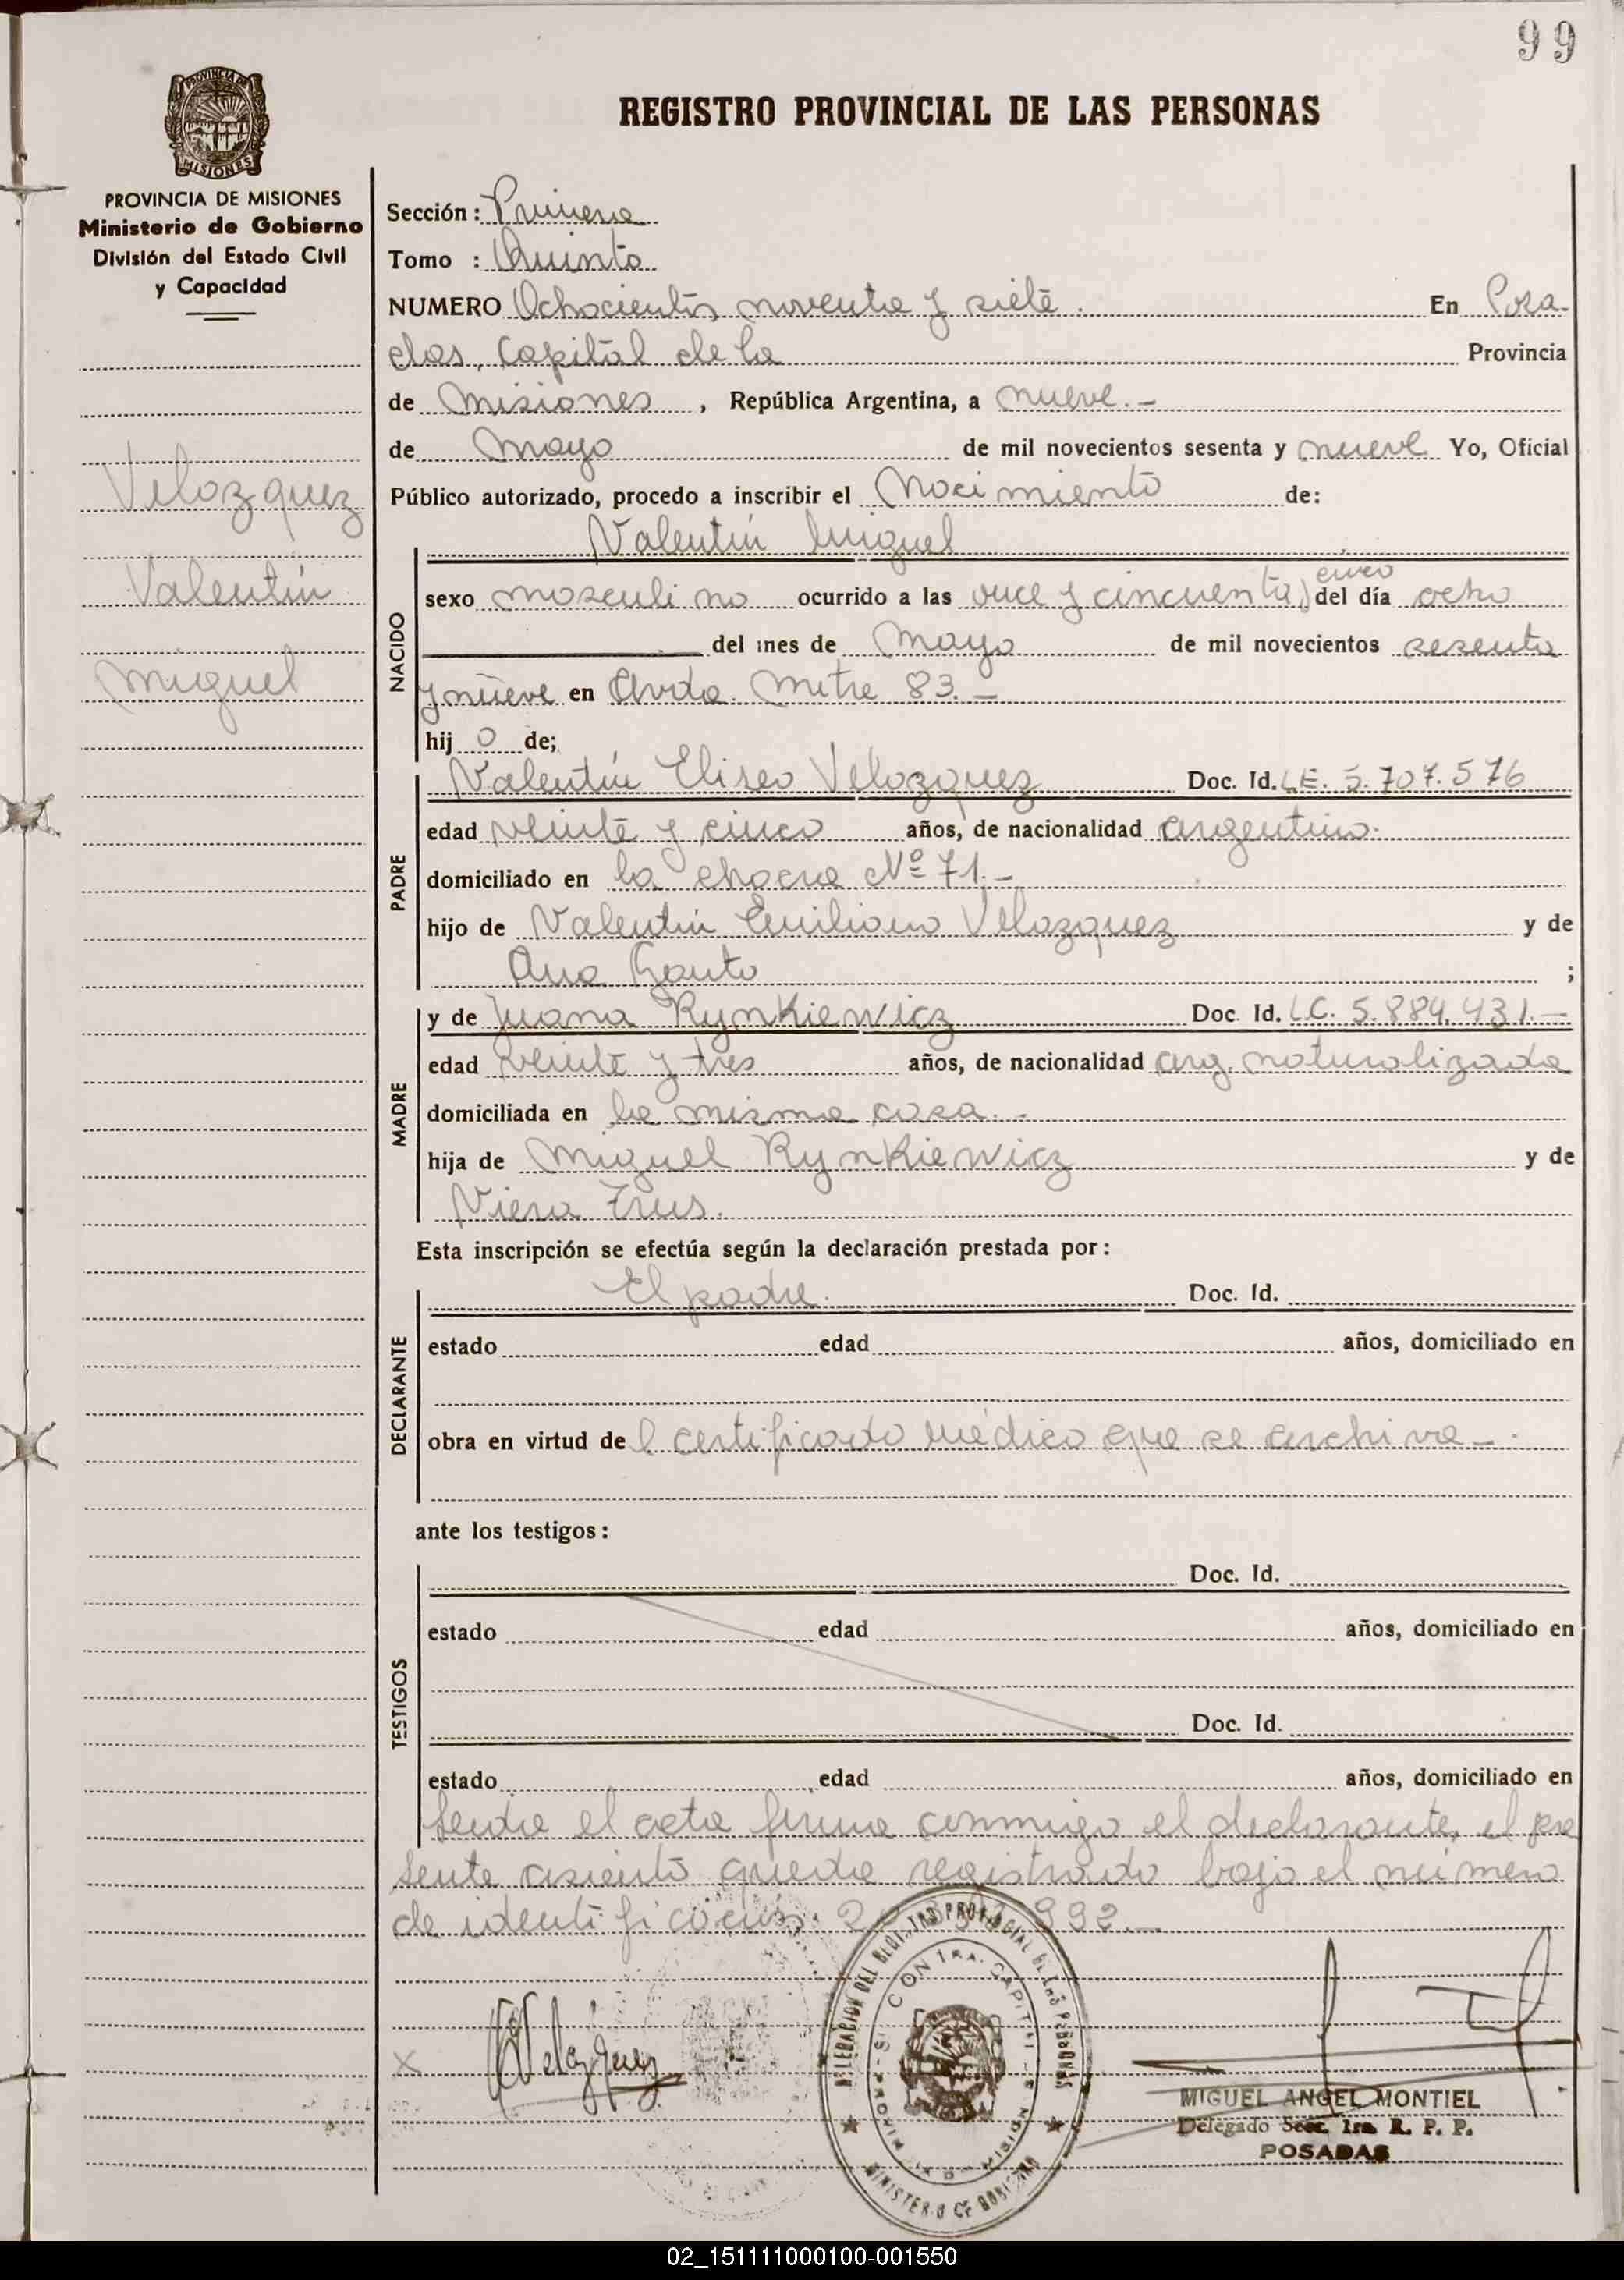 99
REGISTRO PROVINCIAL DE LAS PERSONAS
PROVINCIA DE MISIONES
Ministerio de Gobierno
División del Estado Civil
y Capacidad
Velazquez
Valentín
Miguel
Sección: Primera
Tomo : Quinto
NUMERO Ochocientos noventa y siete. En Posa-
das, Capital de la Provincia
de Misiones, República Argentina, a nueve.-
de Mayo de mil novecientos sesenta y nueve Yo, Oficial
Público autorizado, procedo a inscribir el Nacimiento de:
Valentín Miguel
NACIDO
sexo masculino ocurrido a las once y cincuenta y cinco del día ocho
del mes de Mayo de mil novecientos sesenta
y nueve en Avda. Mitre 83.-
hij o de;
PADRE
Valentín Eliseo Velazquez Doc. Id. L.E. 5.707.576
edad veinte y cinco años, de nacionalidad argentino.
domiciliado en la chacra Nº 71.-
hijo de Valentín Emiliano Velazquez y de
Ana Gauto ;
MADRE
y de Juana Rynkiewicz Doc. Id. L.C. 5.884.431.-
edad veinte y tres años, de nacionalidad arg. naturalizada
domiciliada en la misma casa.-
hija de Miguel Rynkiewicz y de
Viera Trus.
Esta inscripción se efectúa según la declaración prestada por:
DECLARANTE
El padre. Doc. Id.
estado edad años, domiciliado en
obra en virtud del certificado médico que se archiva-.
ante los testigos:
TESTIGOS
Doc. Id.
estado edad años, domiciliado en
Doc. Id.
estado edad años, domiciliado en
Leída el acta firma conmigo el declarante, el pre
sente asiento queda registrado bajo el número
de identificación: 992.-
x Velazquez
MINISTERIO DE GOBIERNO
MIGUEL ANGEL MONTIEL
Delegado Secc. 1ra R. P. P.
POSADAS
02_151111000100-001550